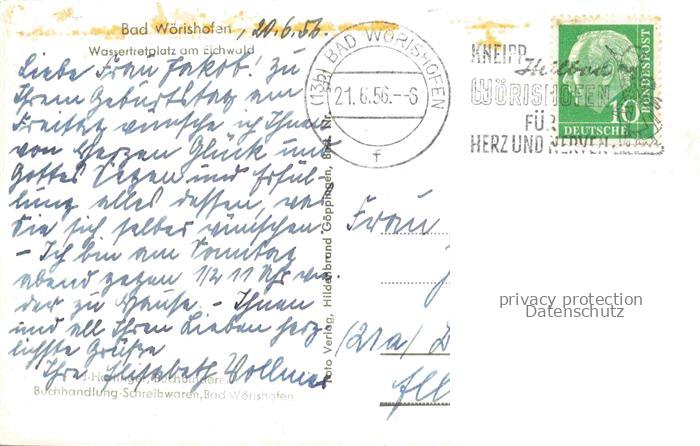 Bad Wörishofen, 20.6.56.
Wassertretplatz am Eichwald
Liebe Frau Jakob! Zu
Ihrem Geburtstag am
Freitag wünsche ich Ihnen
von Herzen Glück und
Gottes Segen und Erfül-
lung alles dessen, was
Sie sich selber wünschen.
- Ich bin am Sonntag
abend gegen 1/2 11 Uhr wie-
der zu Hause. - Ihnen
und all Ihren Lieben herz-
lichste Grüße
Ihre Elisabeth Vollmer
Buchhandlung-Schreibwaren, Bad Wörishofen
Foto Verlag, Hildenbrand Göppingen, Best. Nr.
(13b) BAD WÖRISHOFEN
21.6.56.--6
f
KNEIPP
WÖRISHOFEN
FÜR
HERZ UND NERVEN
10
DEUTSCHE
BUNDESPOST
Frau
(21a)
privacy protection
Datenschutz